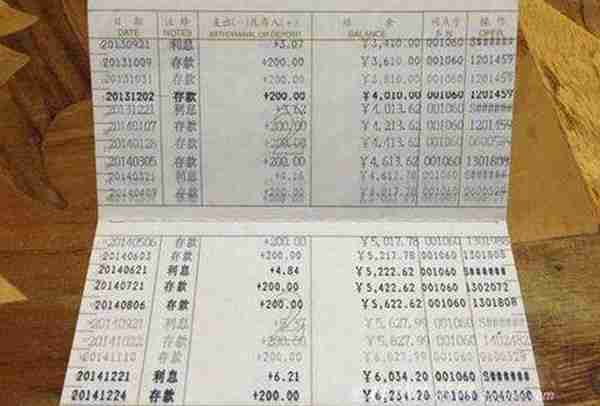 日 期 注 释 支出(-)或存入(+) 结 余 网点号 操 作
DATE NOTES WITHDRAWAL OR DEPOSIT BALANCE S.N. OPER.
20130921 利息 +3.07 ¥3,410.00 001060 S######
20131009 存款 +200.00 ¥3,610.00 001060 1201459
20131031 存款 +200.00 ¥3,810.00 001060
20131202 存款 +200.00 ¥4,010.00 001060 1201459
20131221 利息 +3.62 ¥4,013.62 001060 S######
20140107 存款 +200.00 ¥4,213.62 001060 1201459
20140126 存款 +200.00 ¥4,413.62 001060
20140305 存款 +200.00 ¥4,613.62 001060 1301808
20140321 利息 +4.16 ¥4,617.78 001060 S######
20140409 存款 +200.00 ¥4,817.78 001060
20140506 存款 +200.00 ¥5,017.78 001060 1301988
20140603 存款 +200.00 ¥5,217.78 001060 1301808
20140621 利息 +4.84 ¥5,222.62 001060 S######
20140721 存款 +200.00 ¥5,422.62 001060 1302072
20140806 存款 +200.00 ¥5,622.62 001060 1301808
20140921 利息 +5.37 ¥5,627.99 001060 S######
20141022 存款 +200.00 ¥5,827.99 001060 1402482
20141110 存款 +200.00 ¥6,027.99 001060
20141221 利息 +6.21 ¥6,034.20 001060 S######
20141224 存款 +200.00 ¥6,234.20